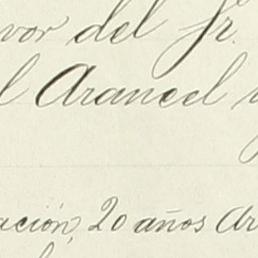 vor del Sr.
l Arancel
ación, 20 años Ar